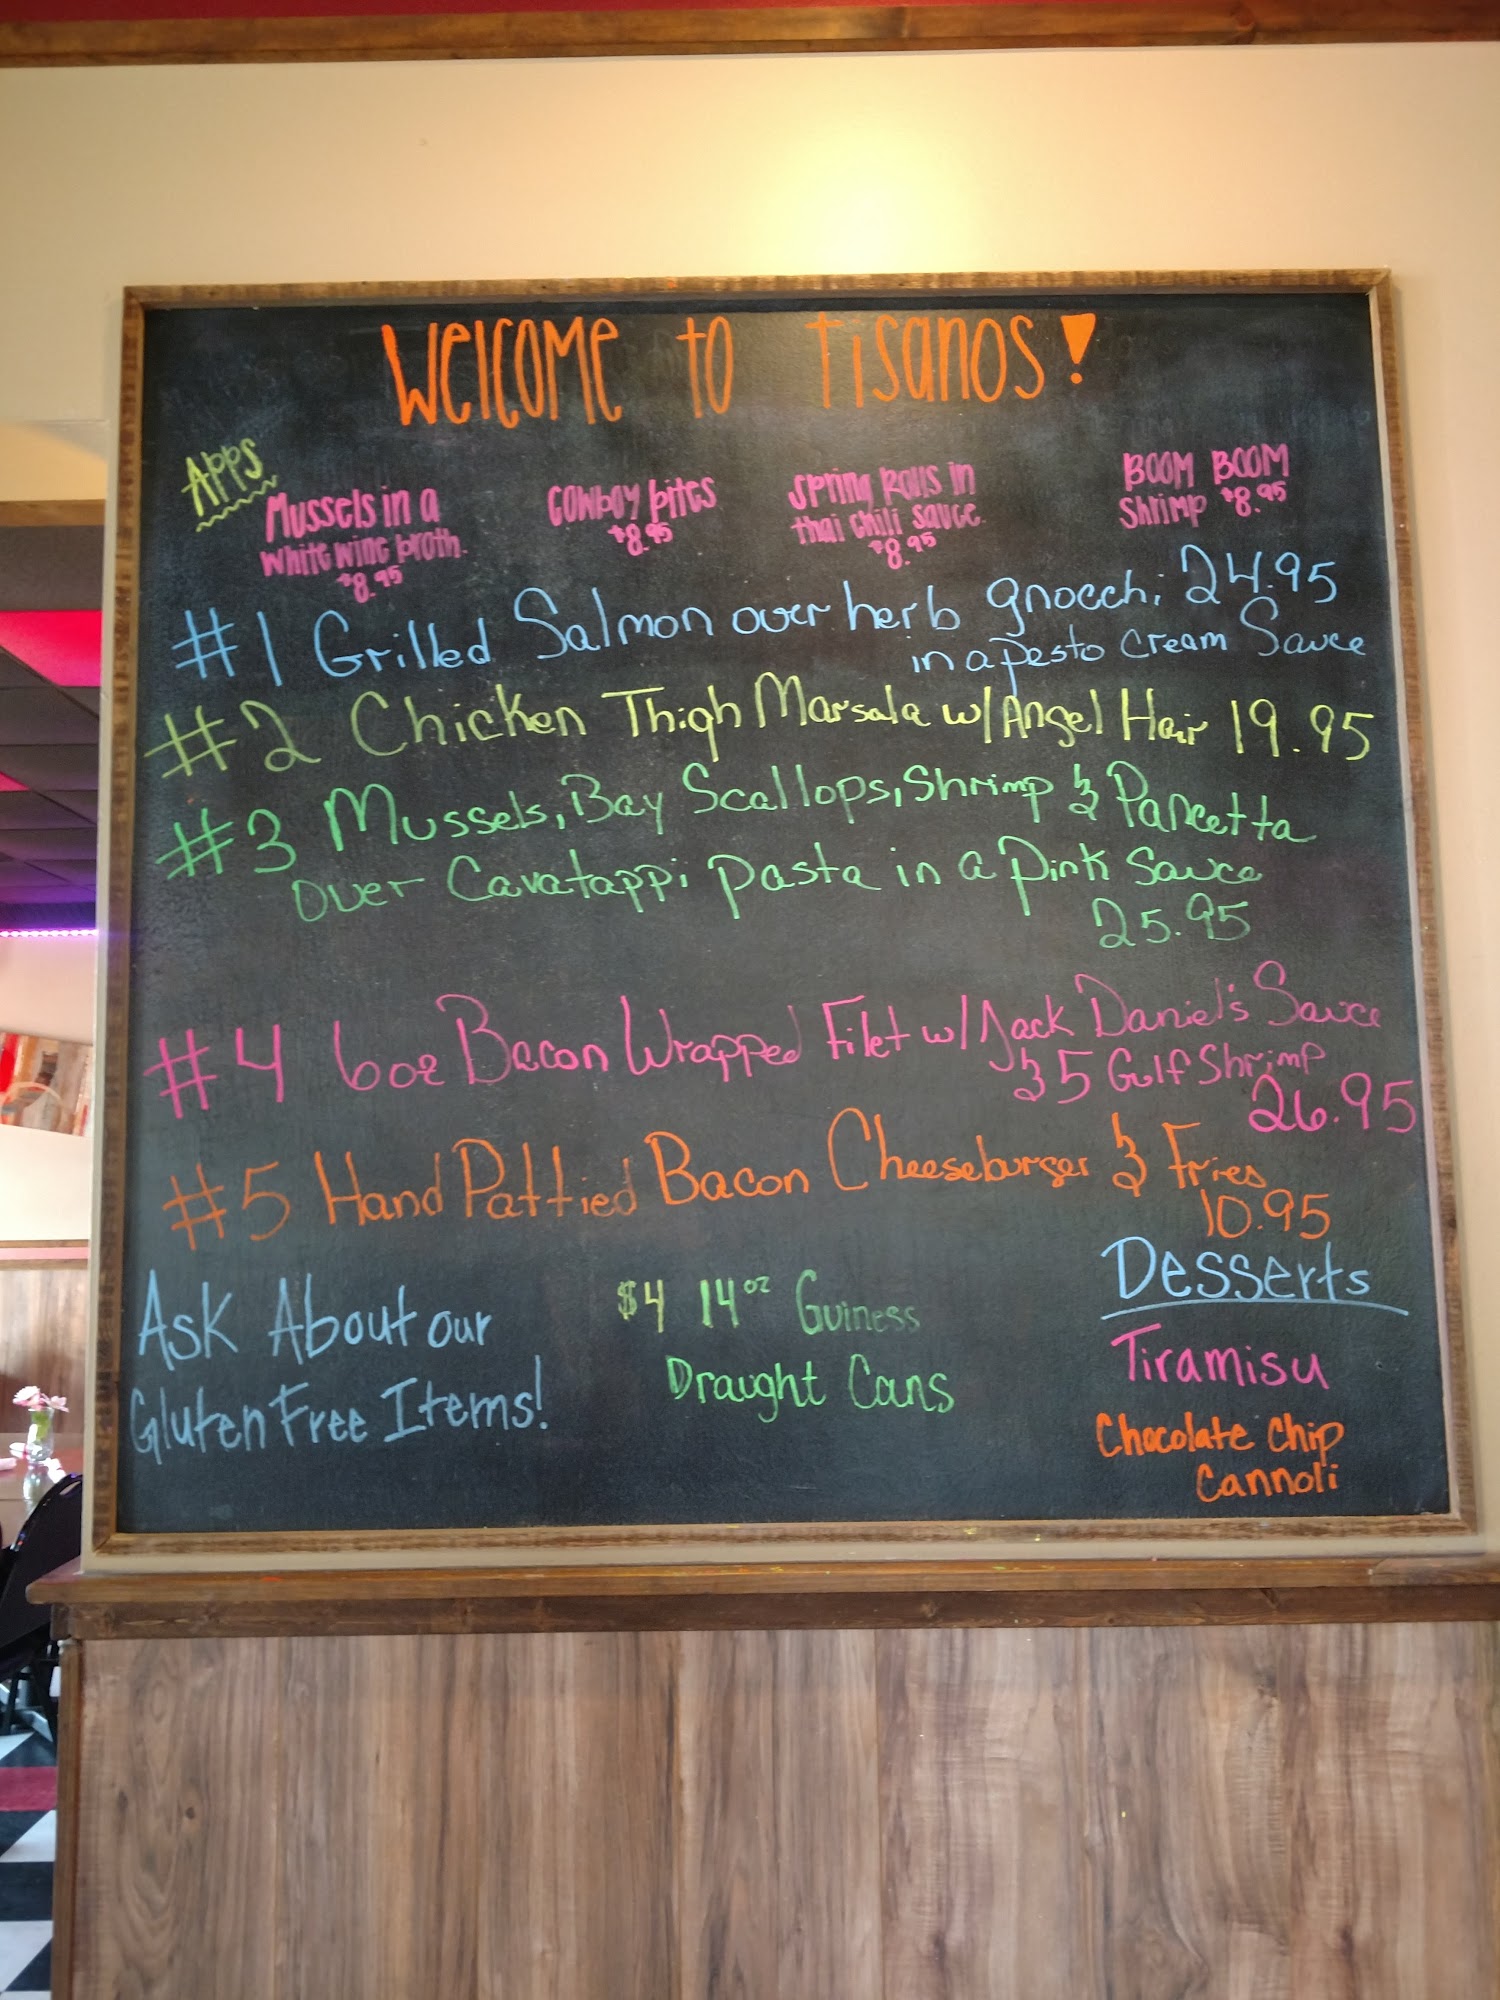 Welcome to Tisanos!
Apps
Mussels in a
white wine broth.
$8.95
Cowboy bites
$8.95
Spring Rolls in
thai chili sauce.
$8.95
BOOM BOOM
Shrimp $8.95
#1 Grilled Salmon over herb gnocchi 24.95
in a pesto cream Sauce
#2 Chicken Thigh Marsala w/Angel Hair 19.95
#3 Mussels, Bay Scallops, Shrimp & Pancetta
over Cavatappi pasta in a pink Sauce
25.95
#4 6oz Bacon Wrapped Filet w/Jack Daniel's Sauce
& 5 Gulf Shrimp
26.95
#5 Hand Pattied Bacon Cheeseburger & Fries
10.95
Ask About our
Gluten Free Items!
$4 14oz Guiness
Draught Cans
Desserts
Tiramisu
Chocolate Chip
Cannoli